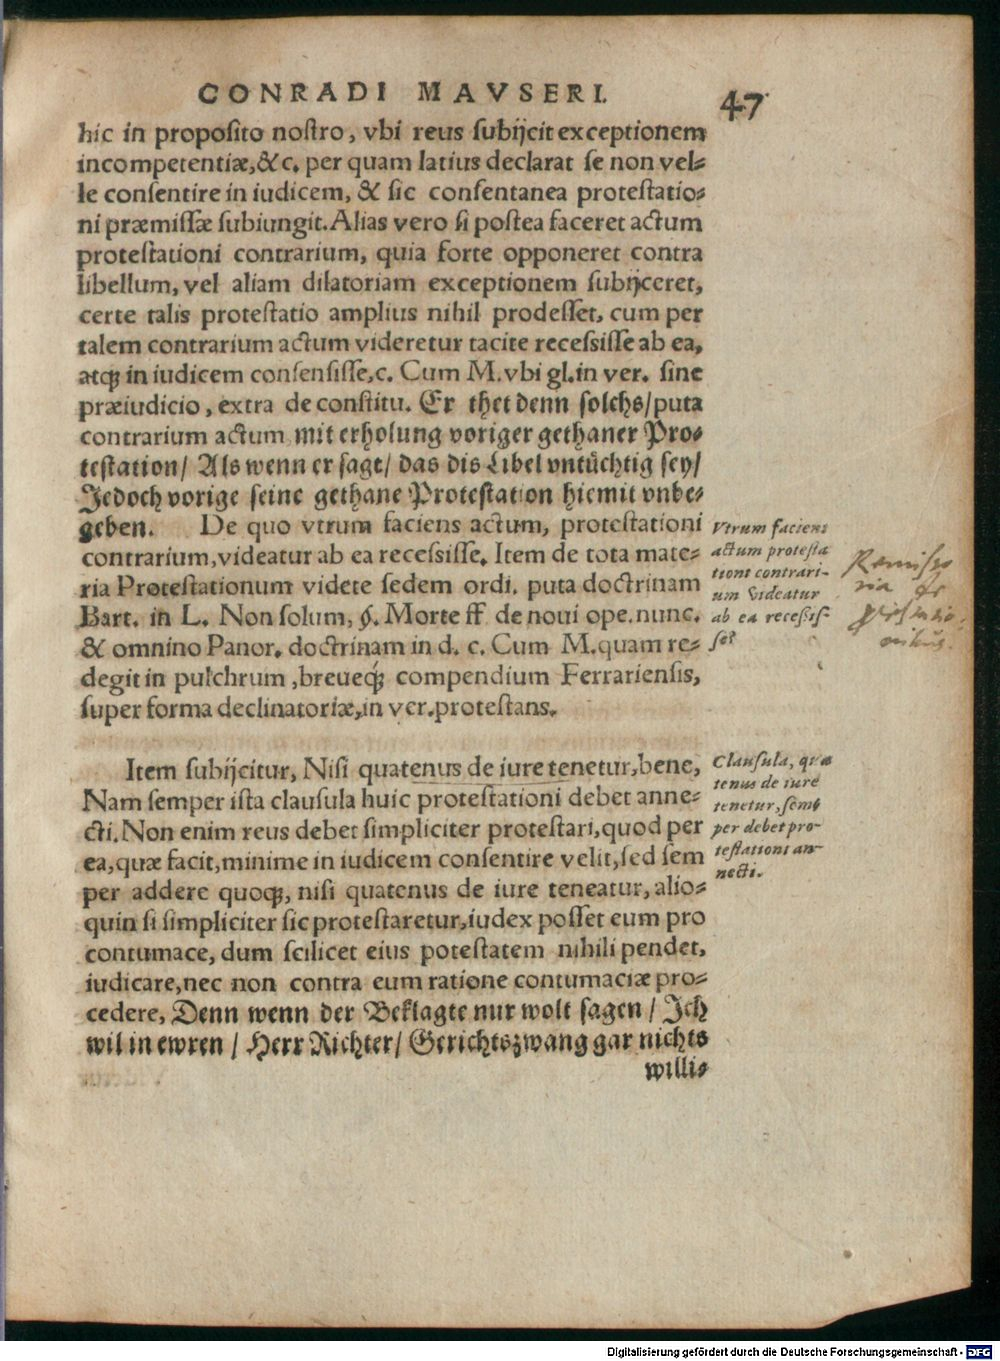 CONRADI MAVSERI.
47
hic in proposito nostro, vbi reus subijcit exceptionem
incompetentiæ,&c. per quam latius declarat se non vel⸗
le consentire in iudicem, & sic consentanea protestatio⸗
ni præmissæ subiungit. Alias vero si postea faceret actum
protestationi contrarium, quia forte opponeret contra
libellum, vel aliam dilatoriam exceptionem subijceret,
certe talis protestatio amplius nihil prodesset, cum per
talem contrarium actum videretur tacite recessisse ab ea,
atq; in iudicem consensisse, c. Cum M. vbi gl. in ver. sine
præiudicio, extra de constitu. Er thet denn solchs/puta
contrarium actum mit erholung voriger gethaner Pro⸗
testation/ Als wenn er sagt/ das dis Libel vntüchtig sey/
Jedoch vorige seine gethane Protestation hiemit vnbe⸗
geben. De quo vtrum faciens actum, protestationi
contrarium, videatur ab ea recessisse. Item de tota mate⸗
ria Protestationum videte sedem ordi. puta doctrinam
Bart. in L. Non solum, §. Morte ff de noui ope. nunc.
& omnino Panor. doctrinam in d. c. Cum M. quam re⸗
degit in pulchrum, breueq́; compendium Ferrariensis,
super forma declinatoriæ, in ver. protestans.
Vtrum faciens
actum protesta
tioni contrari-
um videatur
ab ea recessis-
se?
Remisso
ria de
onibus.
Item subijcitur, Nisi quatenus de iure tenetur, bene,
Nam semper ista clausula huic protestationi debet anne⸗
cti. Non enim reus debet simpliciter protestari, quod per
ea, quæ facit, minime in iudicem consentire velit, sed sem
per addere quoq;, nisi quatenus de iure teneatur, alio⸗
quin si simpliciter sic protestaretur, iudex posset eum pro
contumace, dum scilicet eius potestatem nihili pendet,
iudicare, nec non contra eum ratione contumaciæ pro⸗
cedere, Denn wenn der Beklagte nur wolt sagen/ Jch
wil in ewren / Herr Richter/ Gerichtszwang gar nichts
willi⸗
Clausula, qua
tenus de iure
tenetur, sem
per debet pro-
testationi an-
necti.
Digitalisierung gefördert durch die Deutsche Forschungsgemeinschaft - DFG